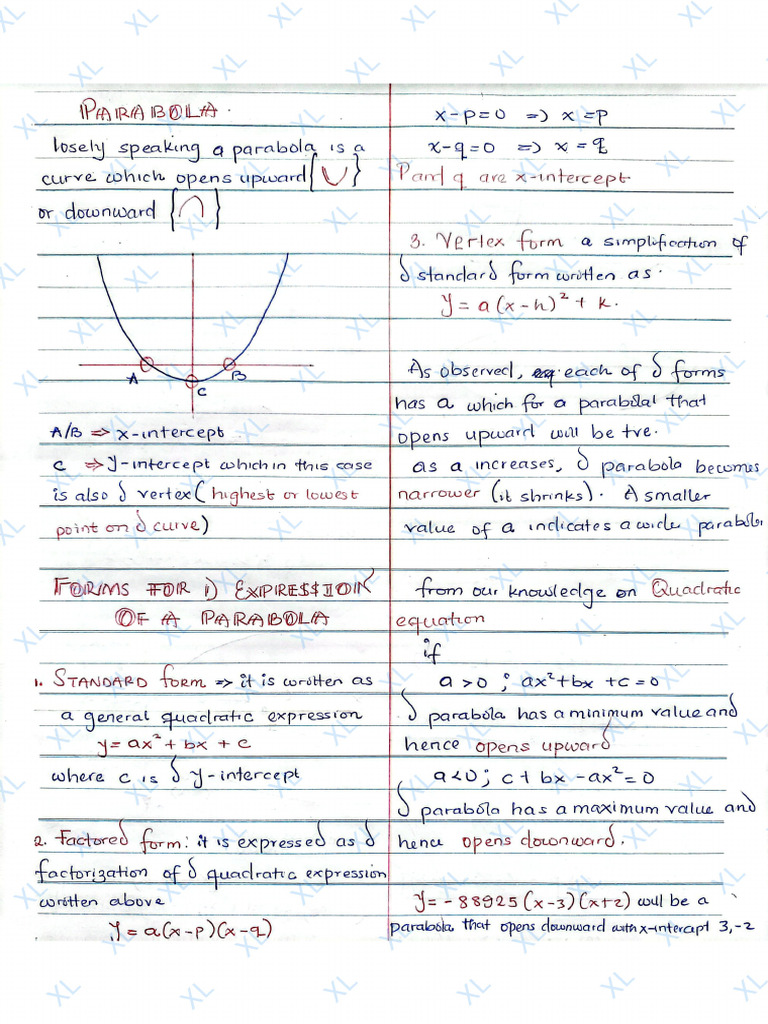 PARABOLA.
losely speaking a parabola is a
curve which opens upward {∪}
or downward {∩}
A
B
C
A/B => x-intercept
C => y-intercept which in this case
is also δ vertex (highest or lowest
point on δ curve)
FORMS FOR D EXPRESSION
OF A PARABOLA
1. STANDARD form => it is written as
a general quadratic expression
y = ax² + bx + c
where c is δ y-intercept
2. Factored form: it is expressed as δ
factorization of δ quadratic expression
written above
y = a(x-p)(x-q)
x-p=0 => x=p
x-q=0 => x=q
P and q are x-intercept
3. Vertex form a simplification of
δ standard form written as.
y = a(x-h)² + k.
As observed, each of δ forms
has a which for a parabolal that
opens upward will be tve.
as a increases, δ parabola becomes
narrower (it shrinks). A smaller
value of a indicates a wide parabola
from our knowledge on Quadratic
equation
if
a>0; ax²+bx+c=0
δ parabola has a minimum value and
hence opens upward
a<0; c+bx-ax²=0
δ parabola has a maximum value and
hence opens downward.
y=-88925(x-3)(x+2) will be a
parabola that opens downward with x-intercept 3,-2
XL